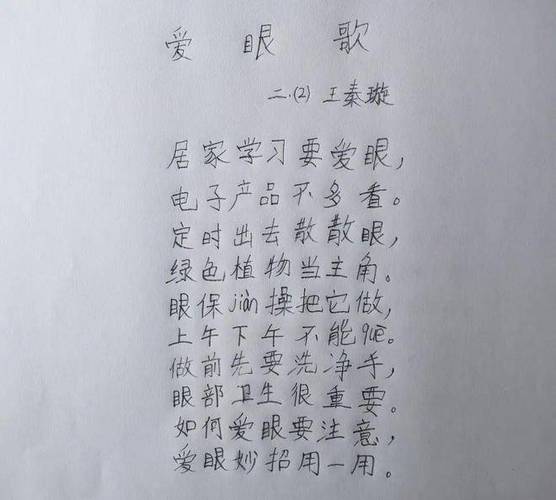 爱眼歌
二.(2) 王秦璇
居家学习要爱眼，
电子产品不多看。
定时出去散散眼，
绿色植物当主角。
眼保jiàn操把它做，
上午下午不能quē。
做前先要洗净手，
眼部卫生很重要。
如何爱眼要注意，
爱眼妙招用一用。